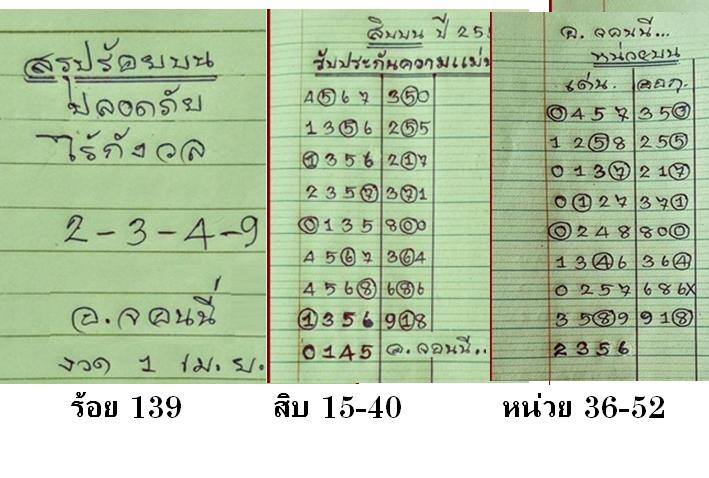 สรุปร้อยบน
ปลอดภัย
ไร้กังวล
2-3-4-9
อ.จอนนี่
งวด 1 เม.ย.
สิบบน ปี 25
รับประกันความแม่น
4567 350
1356 255
1356 217
2357 371
0135 800
4567 364
4568 686
1356 918
0145 อ.จอนนี..
อ.จอนนี...
หน่วยบน
เด่น. ออก.
0457 350
1258 255
0137 217
0127 371
0248 800
1346 364
0257 686x
3589 918
2356
ร้อย 139
สิบ 15-40
หน่วย 36-52